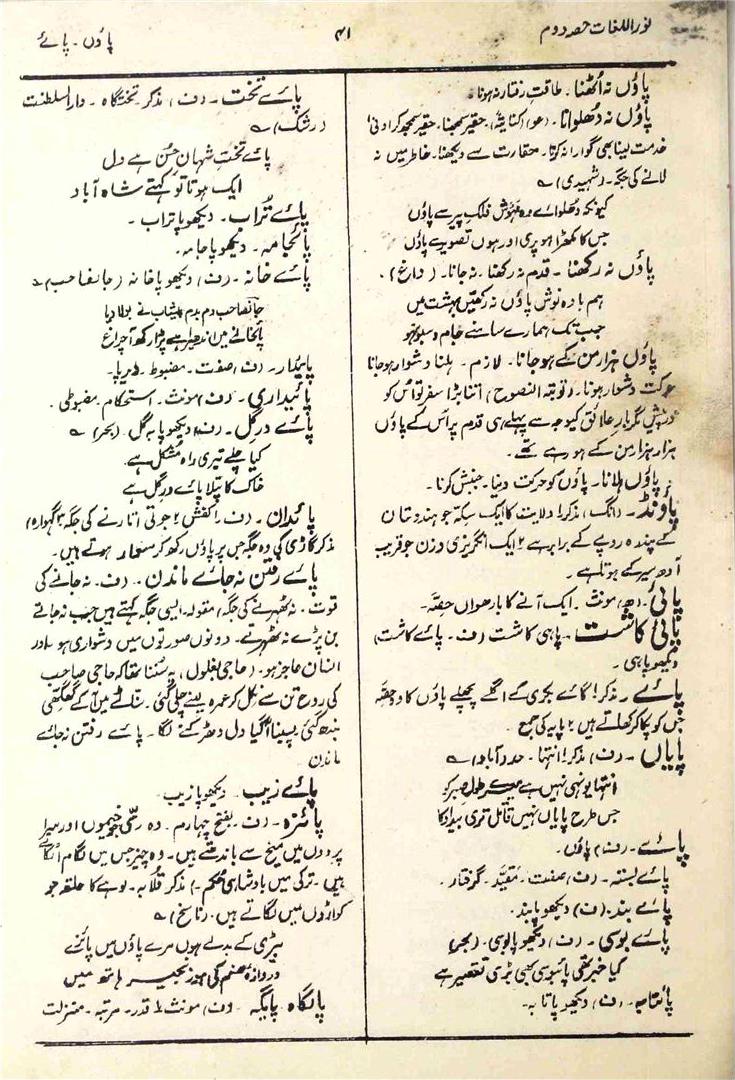 نوراللغات حصہ دوم
۴۱
پاؤں۔ پائے
پاؤں نہ اُٹھنا۔ طاقتِ رفتار نہ ہونا۔
پاؤں نہ دُھلوانا۔ (عو) (کنایۃً) حقیر سمجھنا۔ حقیر سمجھ کر ادنیٰ
خدمت لینا بھی گوارا نہ کرنا۔ حقارت سے دیکھنا۔ خاطر میں نہ
لانے کی جگہ۔ (شہیدی) ؎
کیونکہ دھلوائے وہ مہوش فلکِ پیر سے پاؤں
جس کا مکھڑا ہو پری اور ہوں تصویر سے پاؤں
پاؤں نہ رکھنا۔ قدم نہ رکھنا۔ نہ جانا۔ (داغ)۔
ہم بادہ نوش پاؤں نہ رکھیں بہشت میں
جب تک ہمارے سامنے جام و سبو نہ ہو
پاؤں ہزار من کے ہوجانا۔ لازم۔ ہلنا دشوار ہوجانا
حرکت دشوار ہونا۔ (توبۃ النصوح) اتنا بڑا سفر تو اُس کو
درپیش مگر بارِ علائق کیوجہ سے پہلے ہی قدم پر اُس کے پاؤں
ہزار ہزار من کے ہو رہے تھے۔
پاؤں ہلانا۔ پاؤں کو حرکت دینا۔ جنبش کرنا۔
پاؤنڈ۔ (انگ) مذکر ۱ ولایت کا ایک سکّہ جو ہندوستان
کے پندرہ روپے کے برابر ہے ۲ ایک انگریزی وزن جو قریب
آدھ سیر کے ہوتا ہے۔
پائی۔ (ھ) مونث۔ ایک آنے کا بارھواں حصّہ۔
پائی کاشت۔ پاہی کاشت (ف۔ پائے کاشت)
دیکھو پاہی۔
پائے۔ مذکر ۱ گائے بکری کے اگلے پچھلے پاؤں کا وہ حصّہ
جس کو پکا کر کھاتے ہیں ۲ پایہ کی جمع۔
پایاں۔ (ف) مذکر ۱ انتہا۔ حد (آباد) ؎
انتہا یونہی نہیں ہے میرے طولِ صبر کو
جس طرح پایاں نہیں قاتل تری بیداد کا
پائے۔ (ف) پاؤں۔
پائے بستہ۔ (ف) صفت۔ مُقیّد۔ گرفتار۔
پائے بند۔ (ف) دیکھو پابند۔
پائے بوسی۔ (ف) دیکھو پابوسی۔ (بحر)
کیا خبر تھی پائبوسی بھی بڑی تقصیر ہے
پائتابہ۔ (ف) دیکھو پاتابہ۔
پائے تخت۔ (ف) مذکر۔ تختگاہ۔ دارالسلطنت
(رشک) ؎
پائے تختِ شہانِ حُسن ہے دل
ایک ہوتا تو کہتے شاہ آباد
پائے تُراب۔ دیکھو پاتراب۔
پائجامہ۔ دیکھو پاجامہ۔
پائے خانہ۔ (ف) دیکھو پاخانہ (جانصاحب) ؎
جانصاحب دم بدم پیشاب نے بولا دیا
پائخانے میں اندھیرا ہے پڑا رکھ آ چراغ
پائیدار۔ (ف) صفت۔ مضبوط۔ دیرپا۔
پائیداری۔ (ف) مونث۔ استحکام۔ مضبوطی۔
پائے درگِل۔ (ف) دیکھو پا بہ گل۔ (بحر) ؎
کیا چلے تیری راہ مشکل ہے
خاک کا پُتلا پائے درگِل ہے
پائدان۔ (ف) ۱ کفش ۲ جوتی اتارنے کی جگہ ۳ گہوارہ)
مذکر گاڑی کی وہ جگہ جس پر پاؤں رکھ کر سوار ہوتے ہیں۔
پائے رفتن نہ جائے ماندن۔ (ف۔ نہ جانے کی
قوت۔ نہ ٹھہرنے کی جگہ) مقولہ۔ ایسی جگہ کہتے ہیں جب نہ جاتے
بن پڑے نہ ٹھہرتے۔ دونوں صورتوں میں دشواری ہو۔ اور
انسان عاجز ہو۔ (حاجی بغلول) یہ سُننا تھا کہ حاجی صاحب
کی روح تن سے نکل کر عمرہ لینے چلی گئی۔ سنّاٹے میں آ کے گھگّھی
بندھ گئی پسینا آگیا دل دھڑکنے لگا۔ پائے رفتن نہ جائے
ماندن
پائے زیب۔ دیکھو پازیب۔
پائزہ۔ (ف۔ بفتح چہارم۔ وہ رسّی جو خیموں اور سرا
پردوں میں میخ سے باندھتے ہیں۔ وہ چیز جس میں لگام اٹکاتے
ہیں۔ ترکی میں بادشاہی حکم۔) مذکر قلابہ۔ لوہے کا حلقہ جو
کواڑوں میں لگاتے ہیں۔ (ناسخ) ؎
بیڑی کے بدلے ہوں مرے پاؤں میں پائزے
دروازۂ صنم کی ہو زنجیر ہاتھ میں
پائگاہ پایگہ۔ (ف) مونث ۱ قدر۔ مرتبہ۔ منزلت